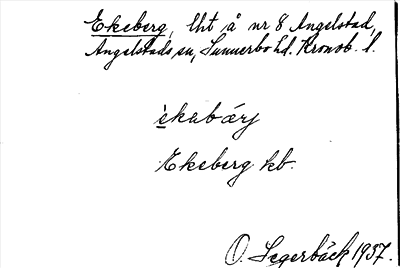 Ekeberg, lht å nr 8 Angelstad,
Angelstads sn, Sunnerbo hd. Kronob. l.
èkabærj
Ekeberg kb.
O. Segerbäck 1937.